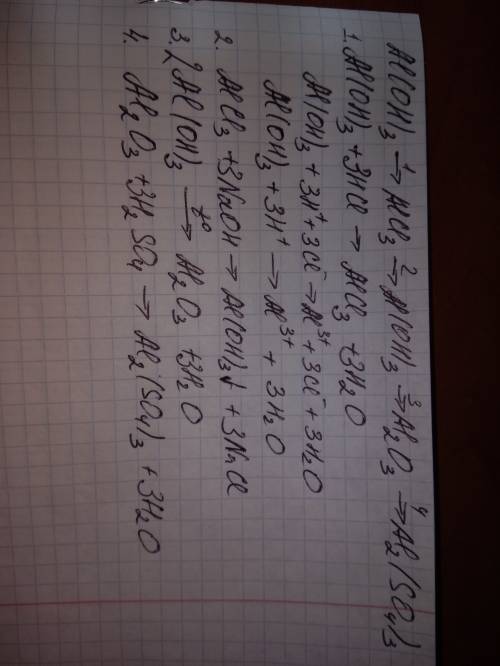 Al(OH)₃ →¹ AlCl₃ →² Al(OH)₃ →³ Al₂O₃ →⁴ Al₂(SO₄)₃
1. Al(OH)₃ + 3HCl → AlCl₃ + 3H₂O
Al(OH)₃ + 3H⁺ + 3Cl⁻ → Al³⁺ + 3Cl⁻ + 3H₂O
Al(OH)₃ + 3H⁺ → Al³⁺ + 3H₂O
2. AlCl₃ + 3NaOH → Al(OH)₃↓ + 3NaCl
3. 2Al(OH)₃ →t° Al₂O₃ + 3H₂O
4. Al₂O₃ + 3H₂SO₄ → Al₂(SO₄)₃ + 3H₂O